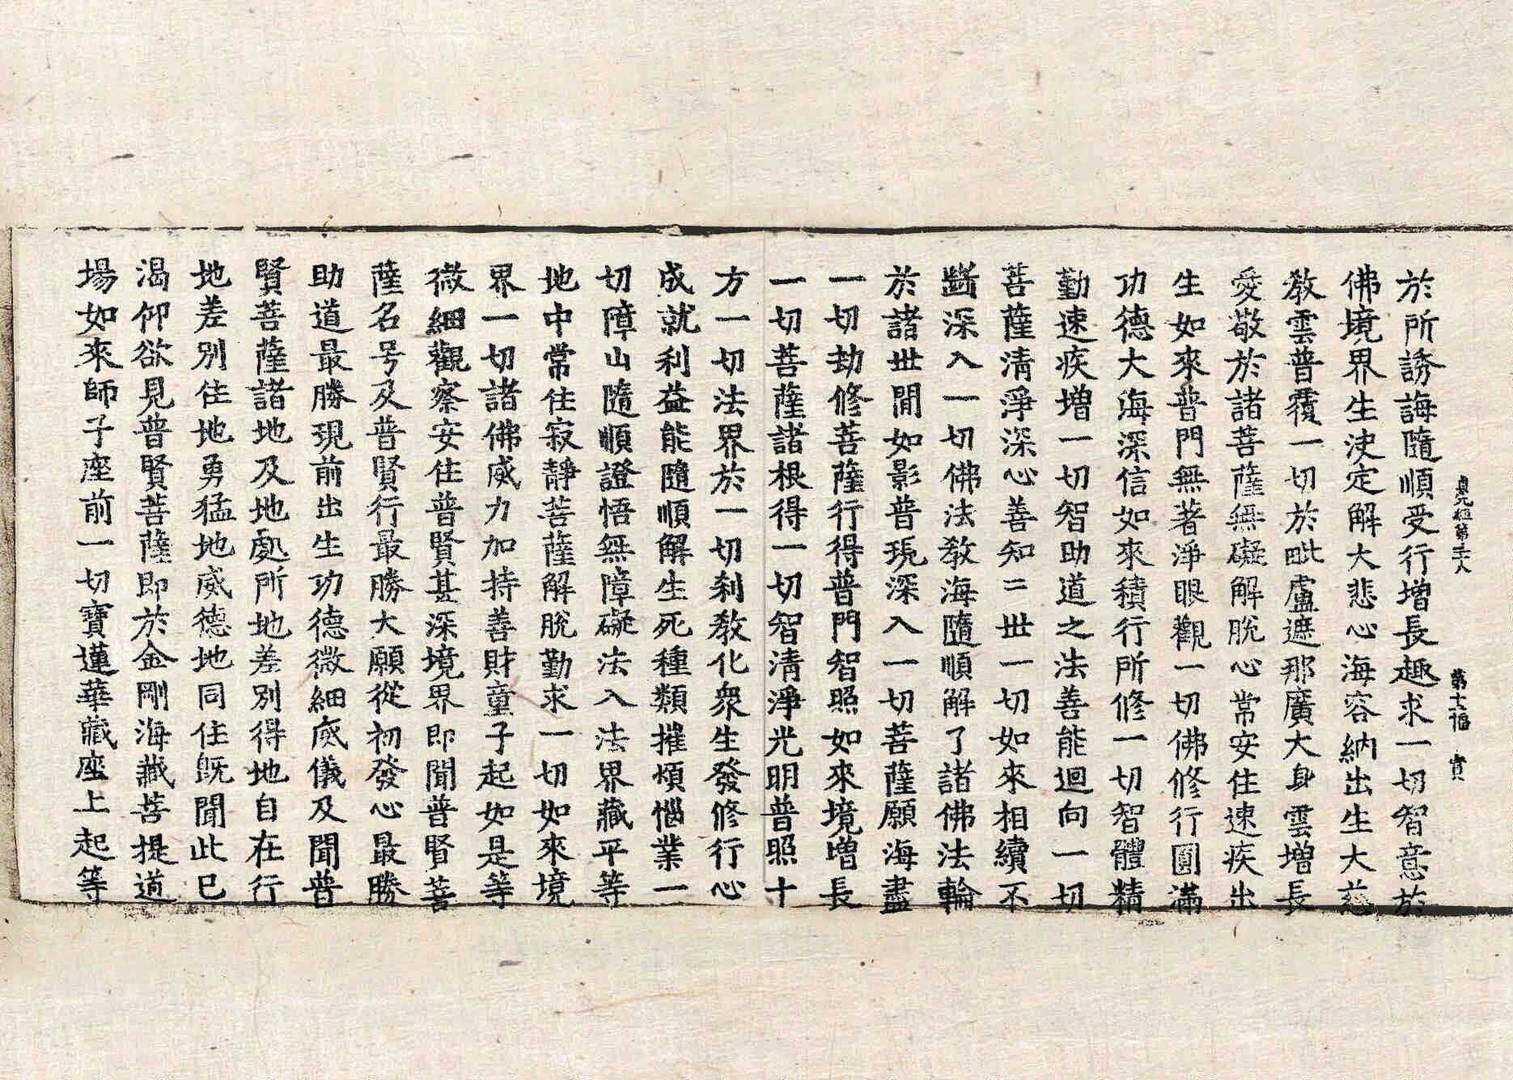 貞元經第三十八　第十七幅　實
於所誘誨隨順受行增長趣求一切智意於
佛境界生決定解大悲心海容納出生大慈
教雲普覆一切於毗盧遮那廣大身雲增長
愛敬於諸菩薩無礙解脫心常安住速疾出
生如來普門無著淨眼觀一切佛修行圓滿
功德大海深信如來積行所修一切智體精
勤速疾增一切智助道之法善能迴向一切
菩薩清淨深心善知三世一切如來相續不
斷深入一切佛法教海隨順解了諸佛法輪
於諸世間如影普現深入一切菩薩願海盡
一切劫修菩薩行得普門智照如來境增長
一切菩薩諸根得一切智清淨光明普照十
方一切法界於一切剎教化眾生發修行心
成就利益能隨順解生死種類摧煩惱業一
切障山隨順證悟無障礙法入法界藏平等
地中常住寂靜菩薩解脫勤求一切如來境
界一切諸佛威力加持善財童子起如是等
微細觀察安住普賢甚深境界即聞普賢菩
薩名号及普賢行最勝大願從初發心最勝
助道最勝現前出生功德微細威儀及聞普
賢菩薩諸地及地處所地差別得地自在行
地差別住地勇猛地威德地同住既聞此已
渴仰欲見普賢菩薩即於金剛海藏菩提道
場如來師子座前一切寶蓮華藏座上起等